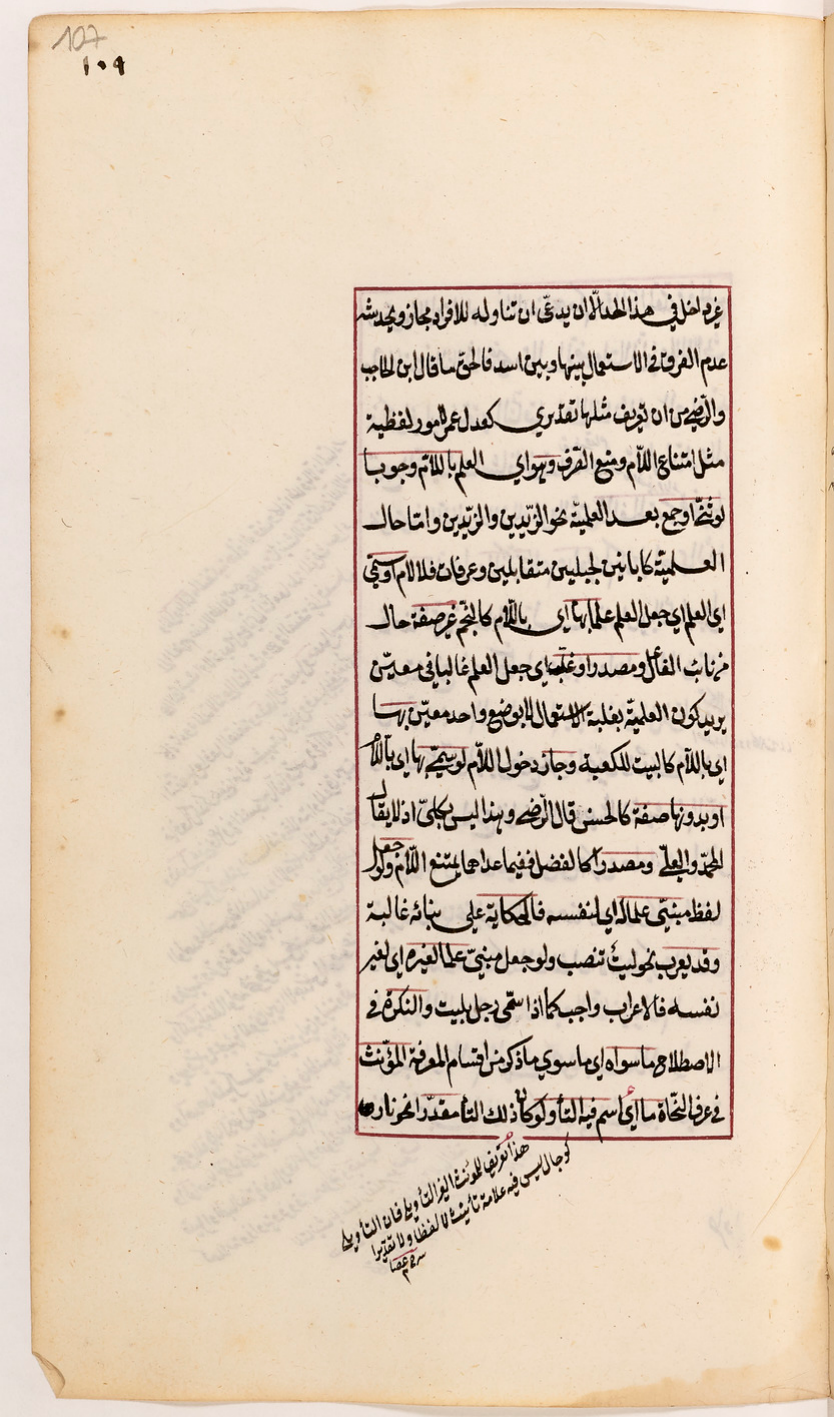 107
١٠٩
غير داخل في هذا الحد الّا ان يدعى ان تناوله للافراد مجاز ويخدشه
عدم الفرق في الاستعمال بينها وبين اسد فالحق ما قال ابن الحاجب
والرّضي من ان تعريف مثلها تقديري كعدل عمر لامور لفظية
مثل امتناع اللّام ومنع الصّرف وهو اي العلم باللّام وجوبا
لو ثنّي او جمع بعد العلميّة نحو الزّيدين والزّيدين وامّا حال
العلميّة كابانين لجبلين متقابلين وعرفات فلا لام او سمّي
اي العلم اي جعل العلم علما بها اي باللّام كالنّجم غير صفة حال
من نائب الفاعل ومصدرا او غلّب اي جعل العلم غالبا في معيّن
يريد كون العلميّة بغلبة الاستعمال لا بوضع واحد معيّن بها
اي باللّام كالبيت للكعبة وجاز دخول اللّام لو سمّي بها اي باللّام
او بدونها صفة كالحسن قال الرّضي وهذا ليس بكلّيّ اذ لا يقال
المحمّد والعليّ ومصدرا كالفضل ففيما عداهما يمتنع اللّام ولو جعل
لفظ مبنيّ علما له اي لنفسه فالحكاية على بنائه غالبة
وقد يعرب نحو ليتٌ تنصب ولو جعل مبنيّ علما لغيره اي لغير
نفسه فالاعراب واجب كما اذا سمّي رجل بليت والنكرة في
الاصطلاح ما سواه اي ما سوي ما ذكر من اقسام المعرفة المؤنّث
في عرف النّحاة ما اي اسم فيه التا ولو كان ذلك التا مقدّرا نحو نار
هذا تعريف للمؤنث الغير التأويلي فان التأويلي
كوجال ليس فيه علامة تأنيث لا لفظا ولا تقديرا